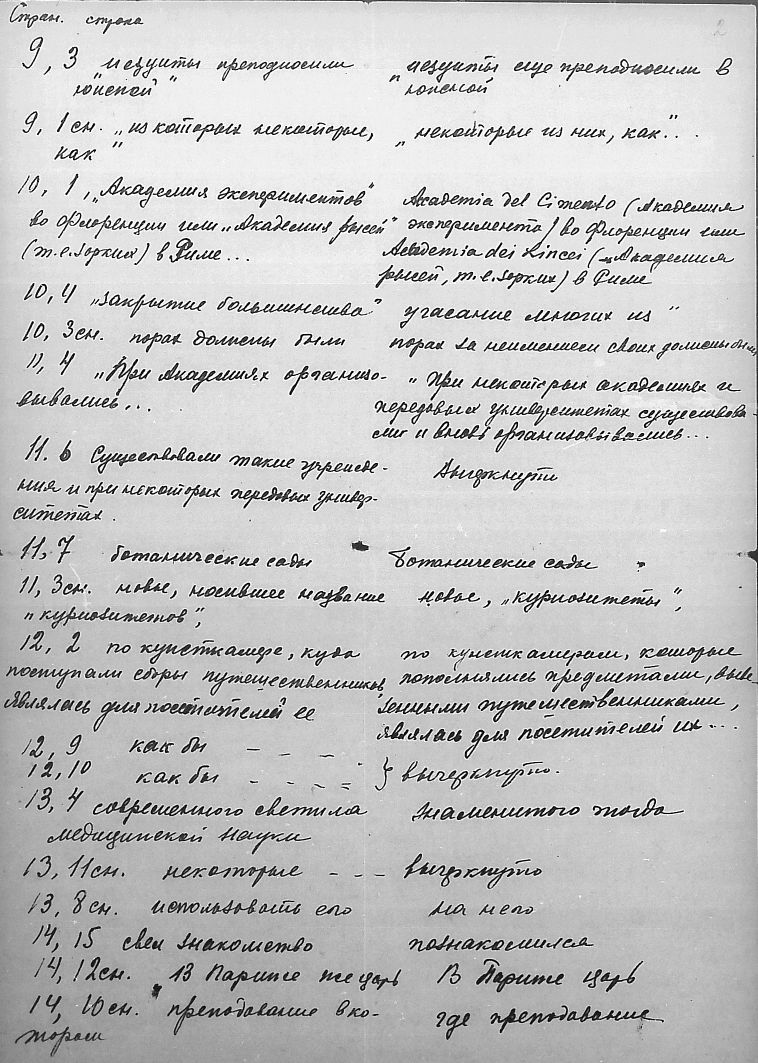 Стран. строка
2
9, 3 иезуиты преподносили „иезуиты еще преподносили в
южной" южной
9, 1 сн. „из которых некоторые, „некоторые из них, как"...
как"
10, 1, „Академия экспериментов" Academia del Cimento (Академия
во Флоренции или „Академия рысей" эксперимента) во Флоренции или
(т.е. зорких) в Риме... Academia dei Lincei („Академия
рысей, т.е. зорких) в Риме
10, 4 „закрытие большинства" угасание многих из "
10, 3 сн. порах должны были порах за неимением своих должны были
11, 4 „При Академиях организо- „при некоторых академиях и
вывались... передовых университетах существова-
ли и вновь организовывались...
11. 6 Существовали такие учрежде- Вычеркнуть
ния и при некоторых передовых универ-
ситетах.
11, 7 ботанические сады Ботанические сады
11, 3 сн. новое, носившее название новое, „куриозитеты",
„куриозитетов",
12, 2 по кунсткамере, куда по кунсткамерам, которые
поступали сборы путешественников, пополнялись предметами, выве
являлась для посетителей ее зенными путешественниками,
являлась для посетителей их...
12, 9 как бы – – – –
12, 10 как бы – – – = } вычеркнуто.
13, 4 современного светила знаменитого тогда
медицинской науки
13, 11 сн. некоторые – – – вычеркнуто
13, 8 сн. использовать его на него
14, 15 свел знакомство познакомился
14, 12 сн. В Париже же царь В Париже царь
14, 10 сн. преподавание в ко- где преподавание
тором